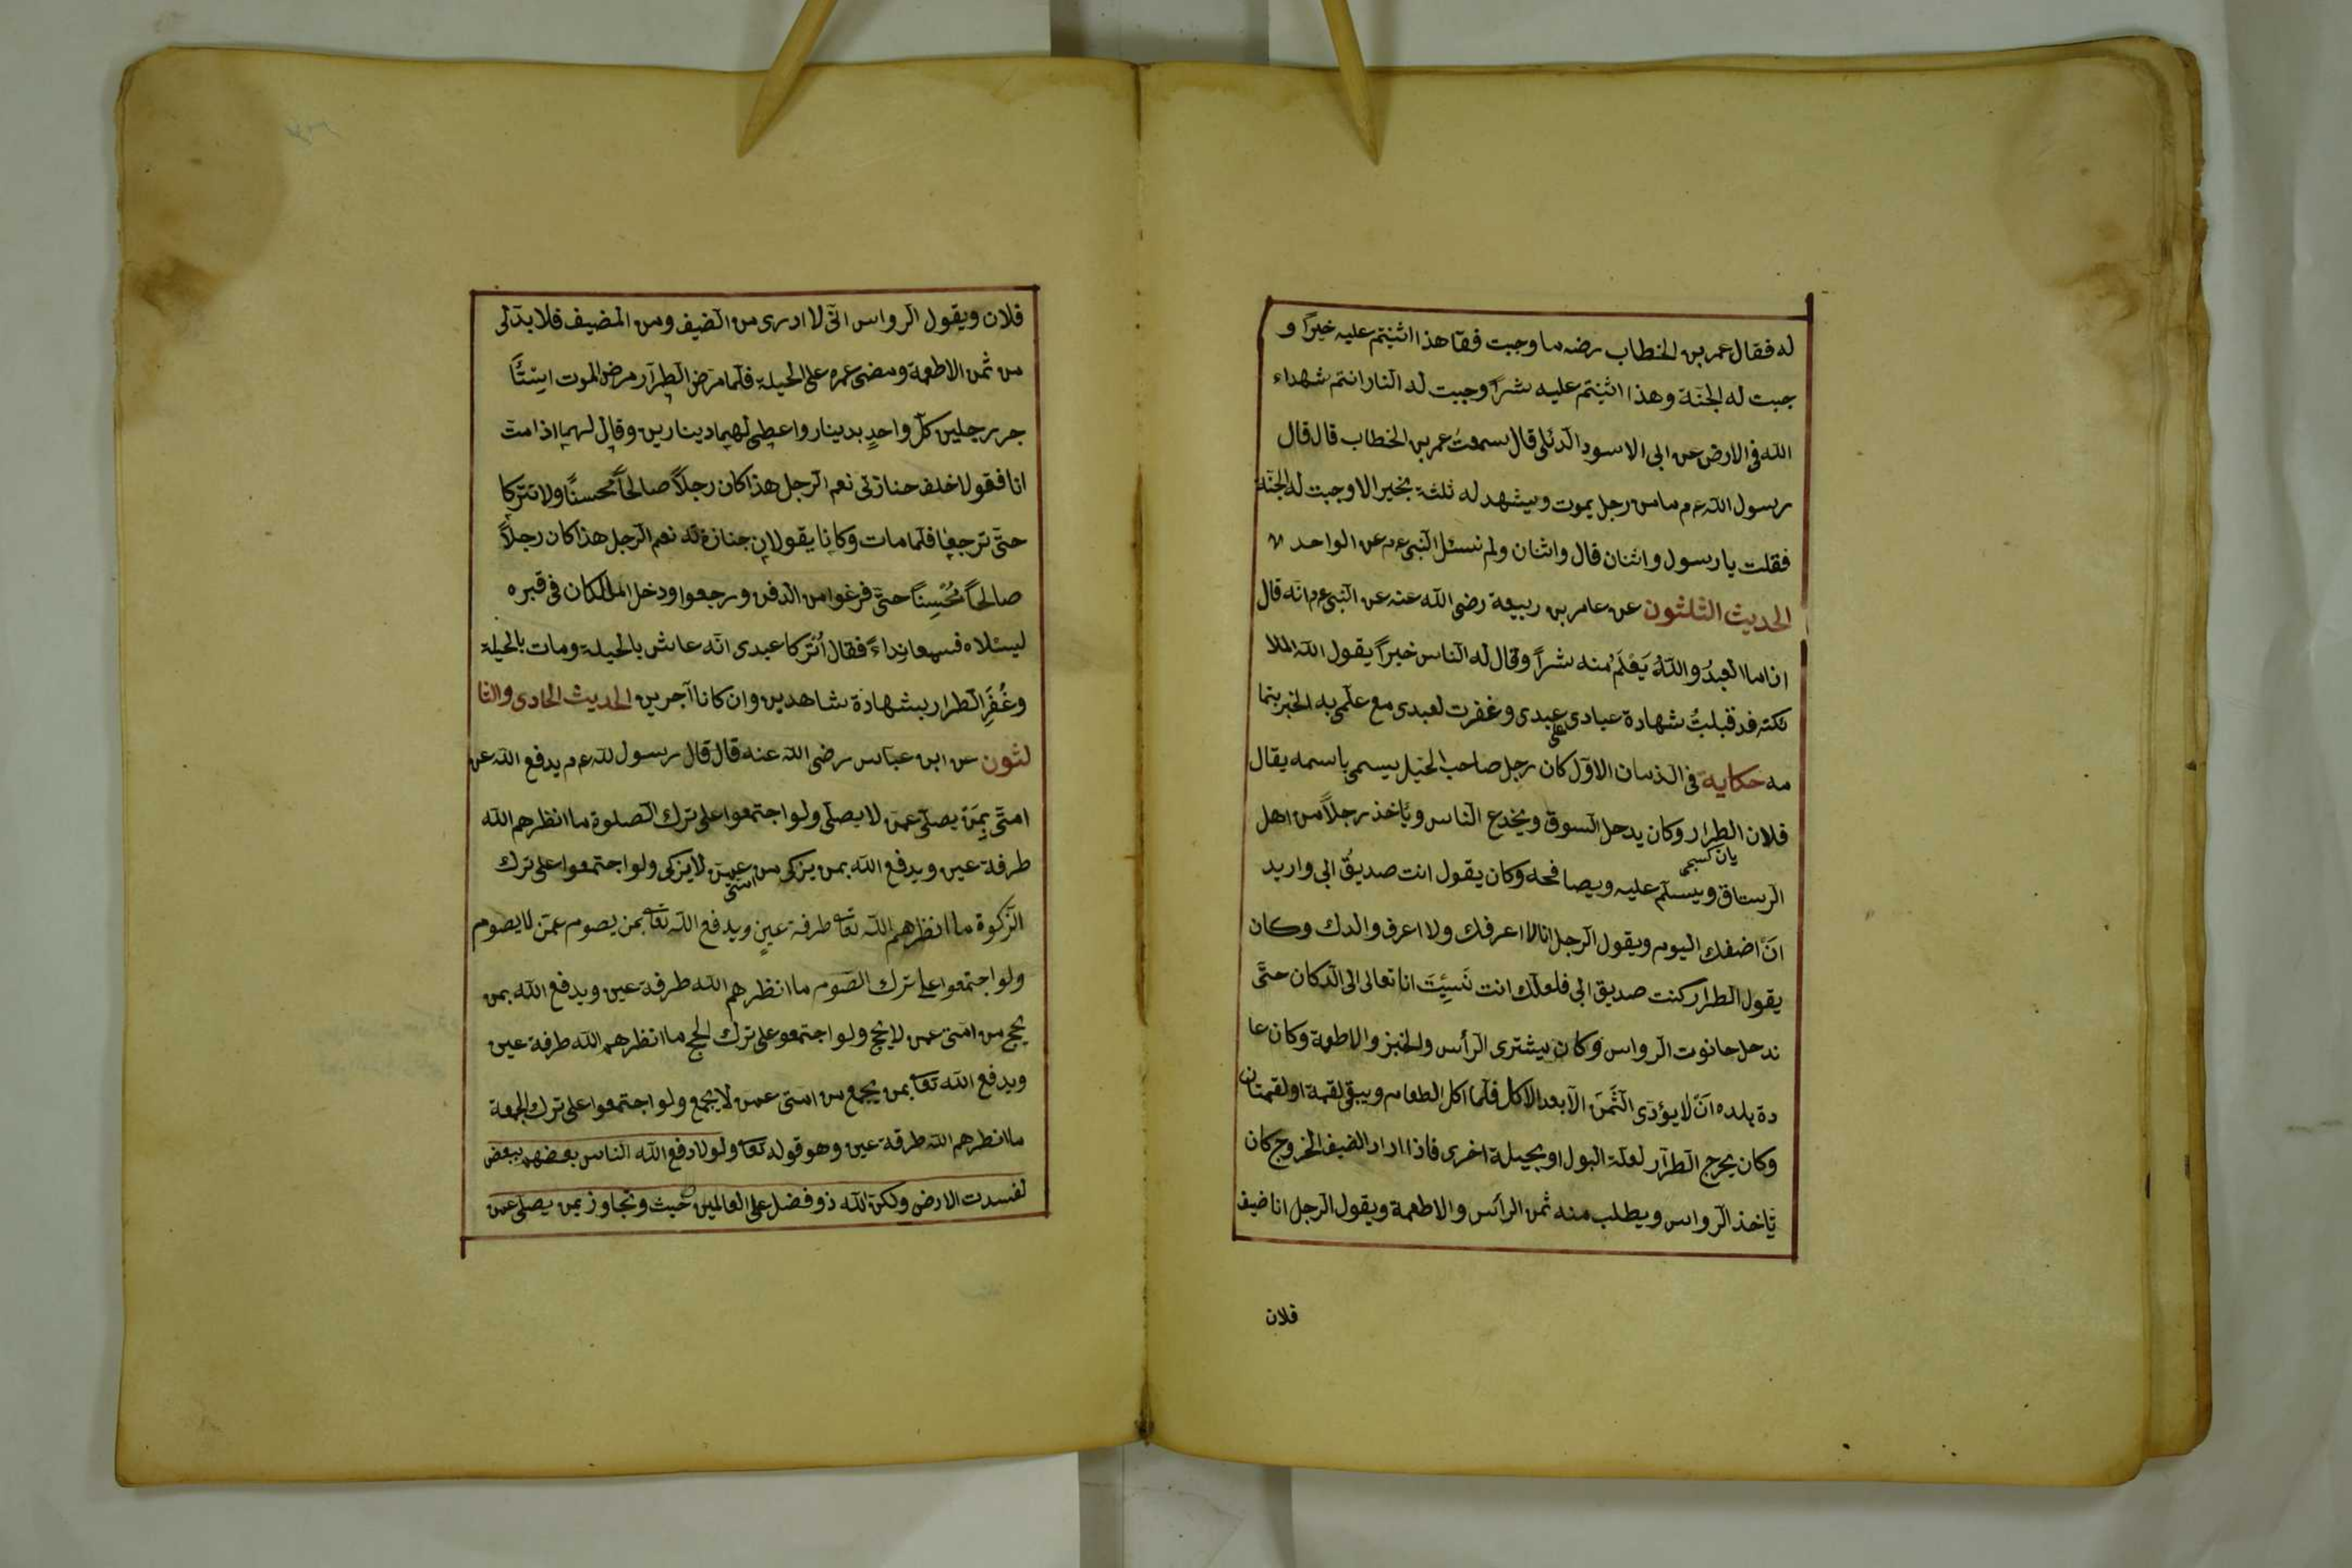 له فقال عمر بن الخطاب رضه ما وجبت فقا هذا اثنيتم عليه خيرًا و
جبت له الجنّة وهذا اثنيتم عليه شرًا وجبت له النار انتم شهداء
الله فى الارض عن ابى الاسود الدئلى قال سمعت عمر بن الخطاب قال قال
رسول الله ءم ما من رجل يموت ويشهد له ثلثة بخير الا وجبت له الجنّة
فقلت يا رسول واثنان قال واثنان ولم نسئل النّبى ءم عن الواحد
الحديث الثلثون عن عامر بن ربيعة رضى الله عنه عن النّبى ءم انّه قال
اذا ما العبدُ واللهُ يَعْلَمُ منه شرًا وقال له الناس خيرًا يقول الله الملا
ئكته قد قبلتُ شهادة عبادى على عبدى وغفرت لعبدى مع علمى به الخبر بتما
مه حكاية فى الذمان الاوّل كان رجل صاحب الحيل يسمى باسمه يقال
فلان الطرار وكان يدحل السوق ويخدع الناس ويأخذ رجلًا من اهل
الرستاق ويسلّم عليه ويصافحه وكان يقول انت صديقُ ابى واريد
يان كسيجى
انّ اضفك اليوم ويقول الرجل انا لا اعرفك ولا اعرف والدك وكان
يقول الطرار كنت صديق ابى فلعلّك انت نَسِئِيتَ انا تعالى الى الدكان حتّى
ندحل حانوت الرواس وكان يشترى الرأس والخبز والاطعمة وكان عا
دة بلده انّ لا يؤدى الثمنَ الّا بعد الاكل فلمّا اكل الطعام ويبقى لقمة او لقمتان
وكان يحرج الطرّار لعلة البول او بحيلة اخرى فاذا اراد الضيف الخروج كان
يأخذ الرواس ويطلب منه ثمن الرأس والاطعمة ويقول الرجل انا ضيف
فلان
فلان ويقول الرواس انّى لا ادرى من الضيف ومن المضيف فلا بدّ لى
من ثمن الاطعمة ومضى عمره على الحيلة فلمّا مرض الطرّار مرض الموت استأ
جر رجلين كلّ واحدٍ بدينار واعطى لهما دينارين وقال لهما اذا مت
انا فقولا خلف جنازتى نعم الرجل هذا كان رجلًا صالحًا محسنًا ولا تتركا
حتّى ترجعا فلمّا مات وكانا يقولان جنازة له نعم الرجل هذا كان رجلًا
صالحًا مُحْسِنًا حتّى فرغوا من الدفن ورجعوا ودخل الملكان فى قبره
ليسئلاه فسمعا نِداءً فقال اُترُكا عبدى انّه عاش بالحيلة ومات بالحيلة
وغُفِرَ الطرار بشهادة شاهدين وان كانا آجرين الحديث الحادى والثا
لثون عن ابن عبّاس رضى الله عنه قال قال رسول لله ءم يدفع الله عن
امتى بِمَنْ يصلّى عمّن لا يصلّى ولو اجتمعوا على ترك الصلوة ما انظرهم الله
طرفة عين ويدفع الله بمن يزكى من امتى عمن لا يزكى ولو اجتمعوا على ترك
الزّكوة ما انظرهم الله تعا طرفة عينٍ ويدفع الله تعا بمن يصوم عمّن لا يصوم
ولو اجتمعوا على ترك الصّوم ما انظرهم الله طرفة عين ويدفع الله بمن
يحج من امتى عمن لا يحج ولو اجتمعو على ترك الحج ما انظرهم الله طرفة عين
ويدفع الله تعا بمن يجمع من امتى عمن لا يجمع ولو اجتمعوا على ترك الجمعة
ما انظرهم الله طرفة عين وهو قوله تعا ولولا دفع الله الناس بعضهم ببعض
لفسدت الارض ولكن الله ذو فضل على العالمين حيث وتجاوز بمن يصلى عمن